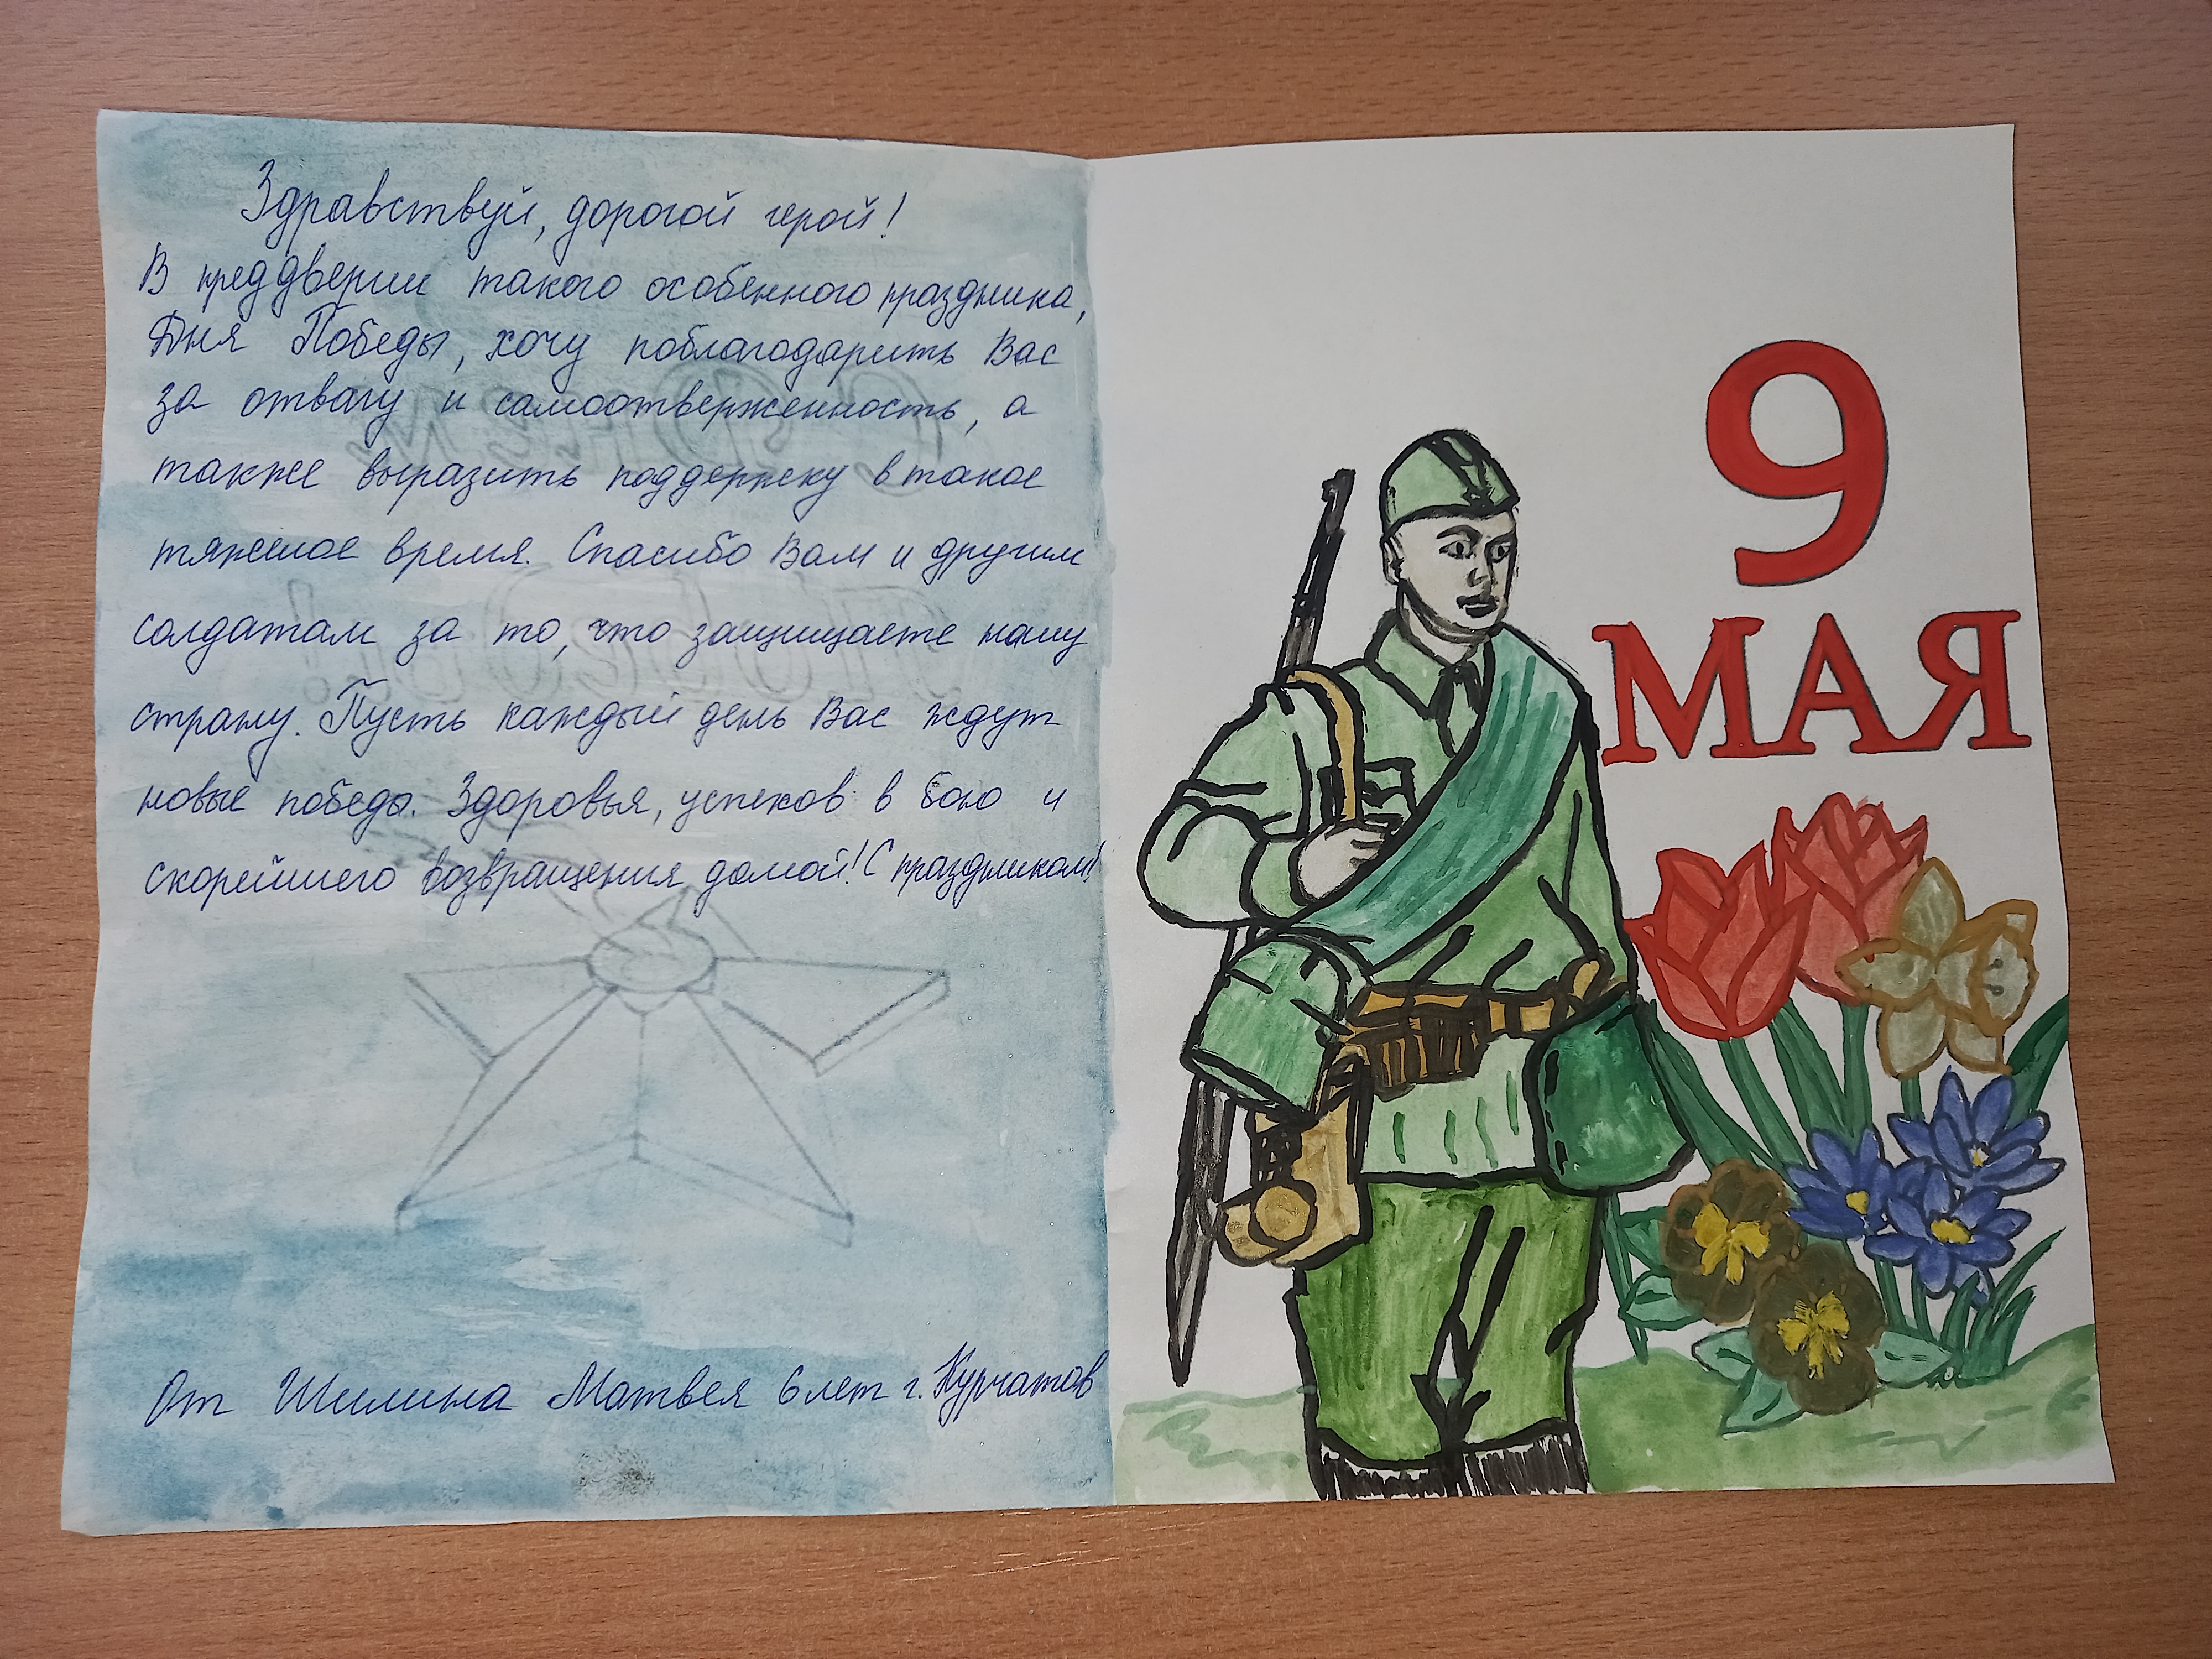 Здравствуй, дорогой герой!
В преддверии такого особенного праздника,
Дня Победы, хочу поблагодарить Вас
за отвагу и самоотверженность, а
также выразить поддержку в такое
тяжелое время. Спасибо Вам и другим
солдатам за то, что защищаете нашу
страну. Пусть каждый день Вас ждут
новые победы. Здоровья, успехов в бою и
скорейшего возвращения домой! С праздником!
От Шилина Матвея 6 лет г. Курчатов
9
МАЯ